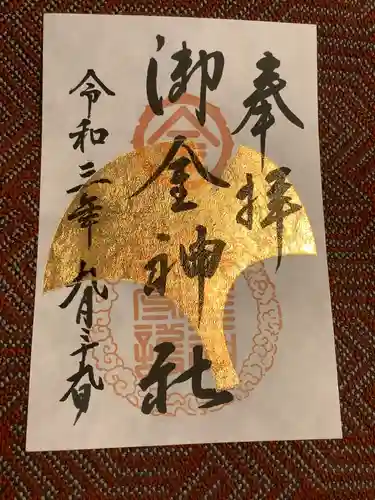 奉拝
御金神社
令和三年九月二十九日